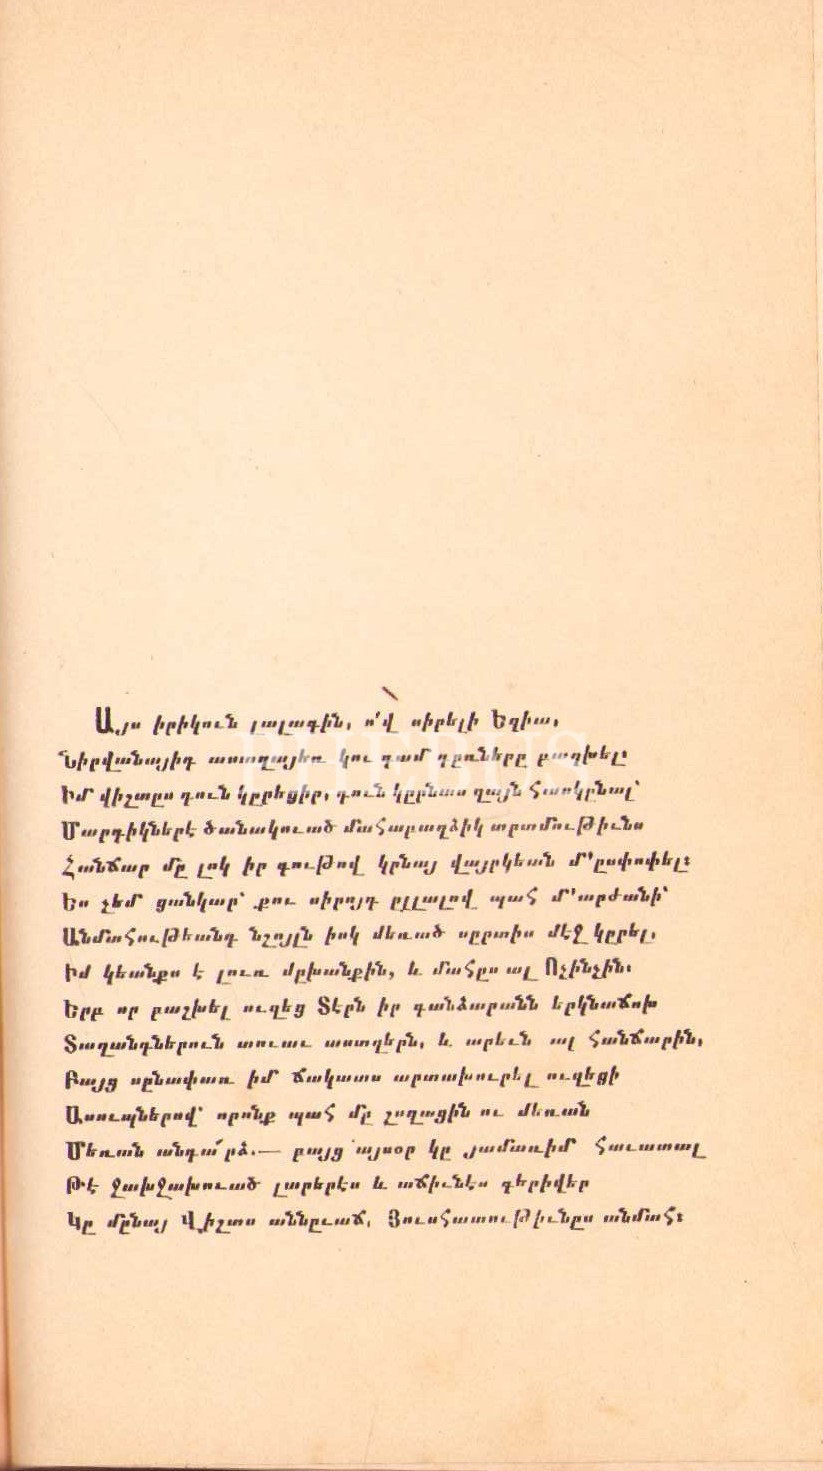 Այս իրիկուն լալագին, ո՛վ սիրելի Եղիա,
Նիրվանայիդ աստղայեռ կու գամ դըռները բաղխել։
Իմ վիշտըս դուն կըրեցիր, դուն կըրնաս զայն հասկընալ՝
Մարդիկներէ ծանակուած մահարաղձիկ տրտմութիւնս
Հանճար մը լոկ իր գութով կրնայ վայրկեան մ՚ըսփոփել։
Ես չեմ ցանկար՝ քու սիրոյդ ըլլալով պահ մ՚արժանի՝
Անմահութեանդ նշոյլն իսկ մեռած սըրտիս մէջ կըրել,
Իմ կեանքս է լուռ մըխանքին, և մահըս ալ Ոչինչին։
Երբ որ բաշխել ուզեց Տէրն իր գանձարանն երկնաճոխ
Տաղանդներուն տուաւ աստղերն, և արեւն ալ հանճարին,
Բայց սընափառ իմ ճակատս արտախուրել ուզեցի
Ասուպներով՝ որոնք պահ մը շողացին ու մեռան
Մեռան անդա՜րձ.— բայց այսօր կը յամառիմ հաւատալ
Թէ ջախջախուած լարերէս և աճիւնէս գերիվեր
Կը մընայ Վիշտս աննըւաճ, Յուսահատութիւնըս անմահ։